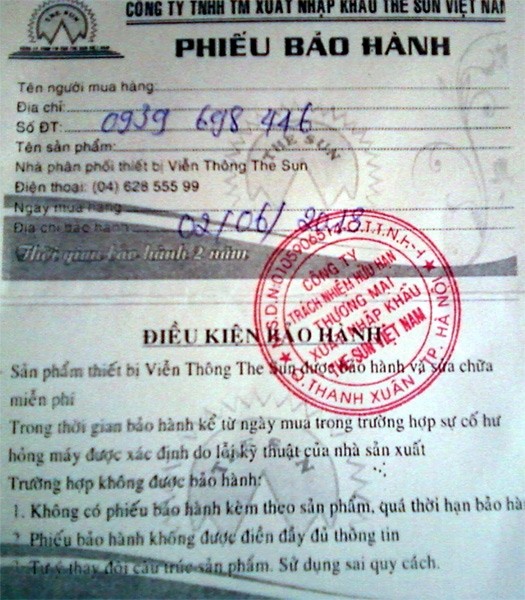 THE SUN
CÔNG TY TNHH TM XUẤT NHẬP KHẨU THE SUN VIỆT NAM
PHIẾU BẢO HÀNH
Tên người mua hàng:
Địa chỉ:
Số ĐT: 0939 698 446
Tên sản phẩm:
THE SUN
Nhà phân phối thiết bị Viễn Thông The Sun
Điện thoại: (04) 628 555 99
Ngày mua hàng 02/06/2013
Địa chỉ bảo hành
Thời gian bảo hành 2 năm
CÔNG TY
TRÁCH NHIỆM HỮU HẠN
THƯƠNG MẠI
XUẤT NHẬP KHẨU
THE SUN VIỆT NAM
Q. THANH XUÂN - TP. HÀ NỘI
ĐIỀU KIÊN BẢO HÀNH
Sản phẩm thiết bị Viễn Thông The Sun được bảo hành và sửa chữa
miễn phí
Trong thời gian bảo hành kể từ ngày mua trong trường hợp sự cố hư
hỏng máy được xác định do lỗi kỹ thuật của nhà sản xuất
Trường hợp không được bảo hành:
1. Không có phiếu bảo hành kèm theo sản phẩm, quá thời hạn bảo hà
2. Phiếu bảo hành không được điền đầy đủ thông tin
3. Tự ý thay đổi cấu trúc sản phẩm. Sử dụng sai quy cách.